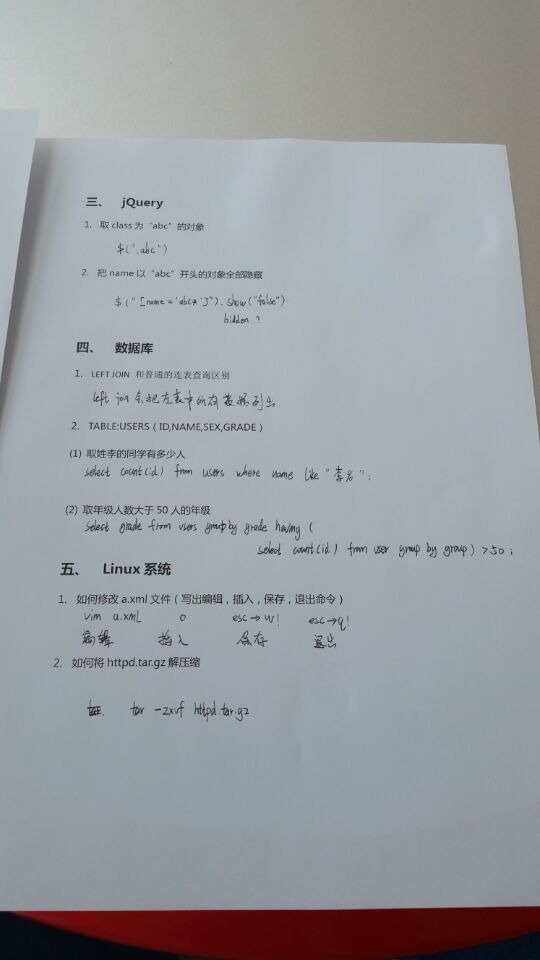 三、 jQuery
1. 取 class 为 "abc" 的对象
$(".abc")
2. 把 name 以 "abc" 开头的对象全部隐藏
$("[name='abc*']").show("false").
hidden ?
四、 数据库
1. LEFT JOIN 和普通的连表查询区别
left join 会把左表中的所有数据列出
2. TABLE:USERS（ID,NAME,SEX,GRADE）
(1) 取姓李的同学有多少人
select count(id) from users where name like "李名";
(2) 取年级人数大于 50 人的年级
select grade from users group by grade having (
select count(id) from user group by group) >50;
五、 Linux 系统
1. 如何修改 a.xml 文件（写出编辑，插入，保存，退出命令）
vim a.xml o esc→w! esc→q!
编辑 插入 保存 退出
2. 如何将 httpd.tar.gz 解压缩
tar -zxvf httpd.tar.gz